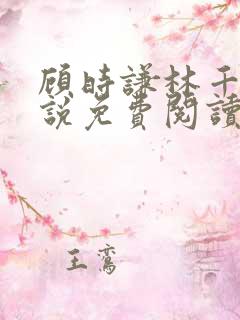 顾时謙林千
說免費閱讀
王鸾